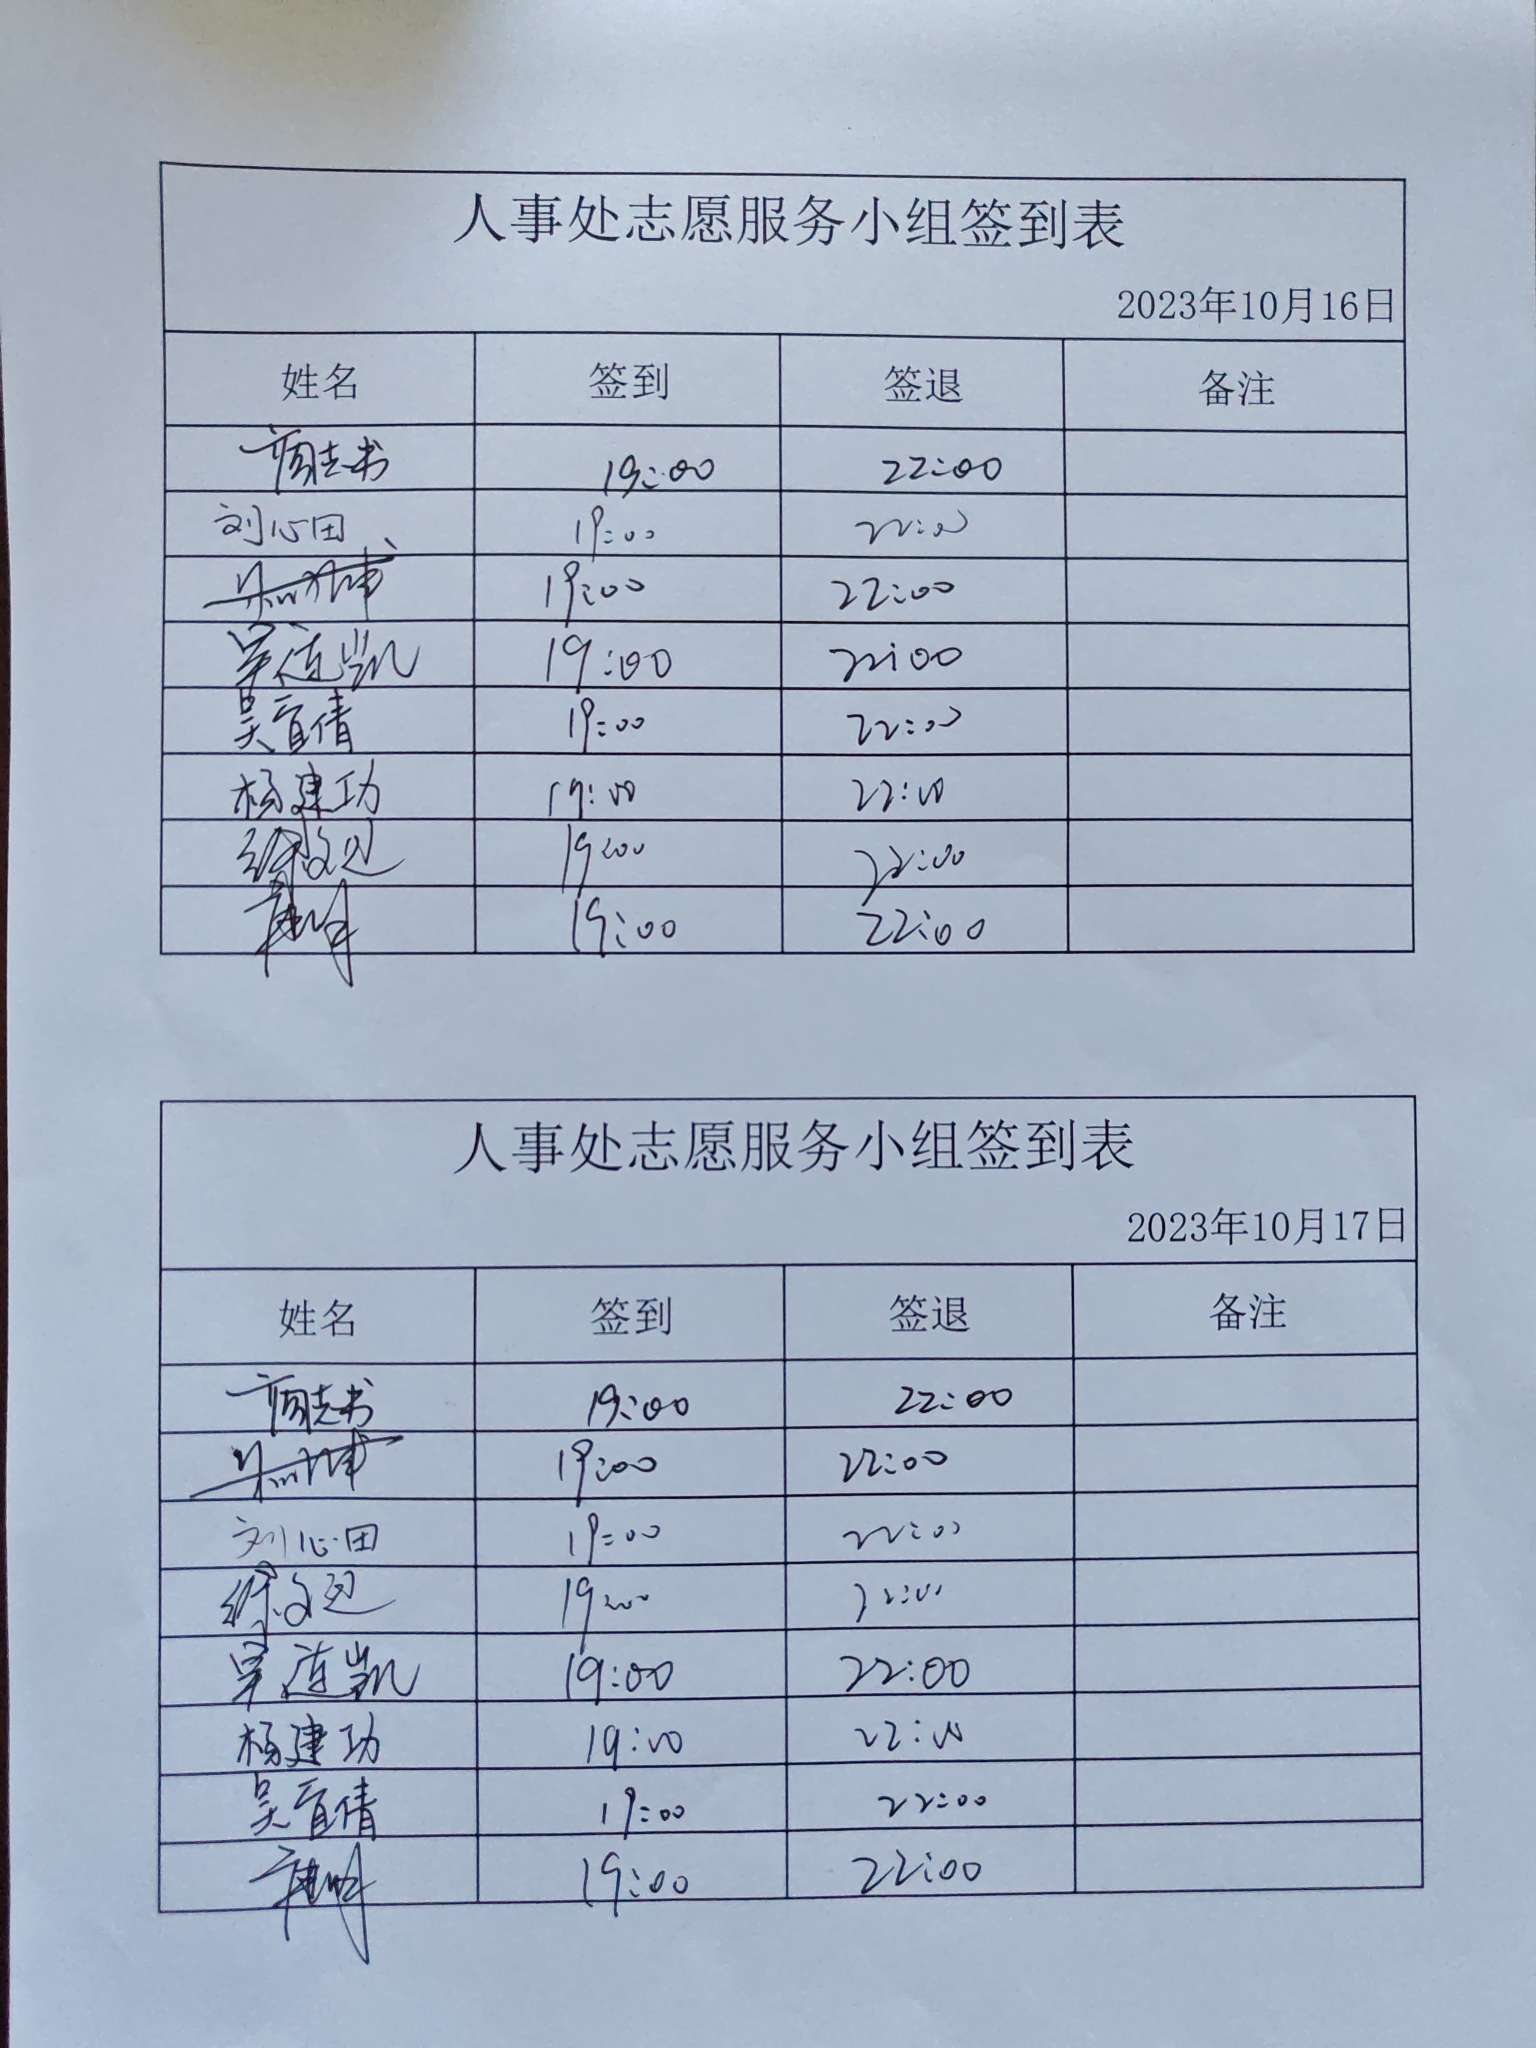 人事处志愿服务小组签到表
2023年10月16日
姓名 签到 签退 备注
19:00 22:00
刘心田 19:00 22:00
19:00 22:00
吴连凯 19:00 22:00
吴宜倩 19:00 22:00
杨建功 19:00 22:00
徐文迅 19:00 22:00
19:00 22:00
人事处志愿服务小组签到表
2023年10月17日
姓名 签到 签退 备注
19:00 22:00
19:00 22:00
刘心田 19:00 22:00
徐文迅 19:00 22:00
吴连凯 19:00 22:00
杨建功 19:00 22:00
吴宜倩 19:00 22:00
19:00 22:00